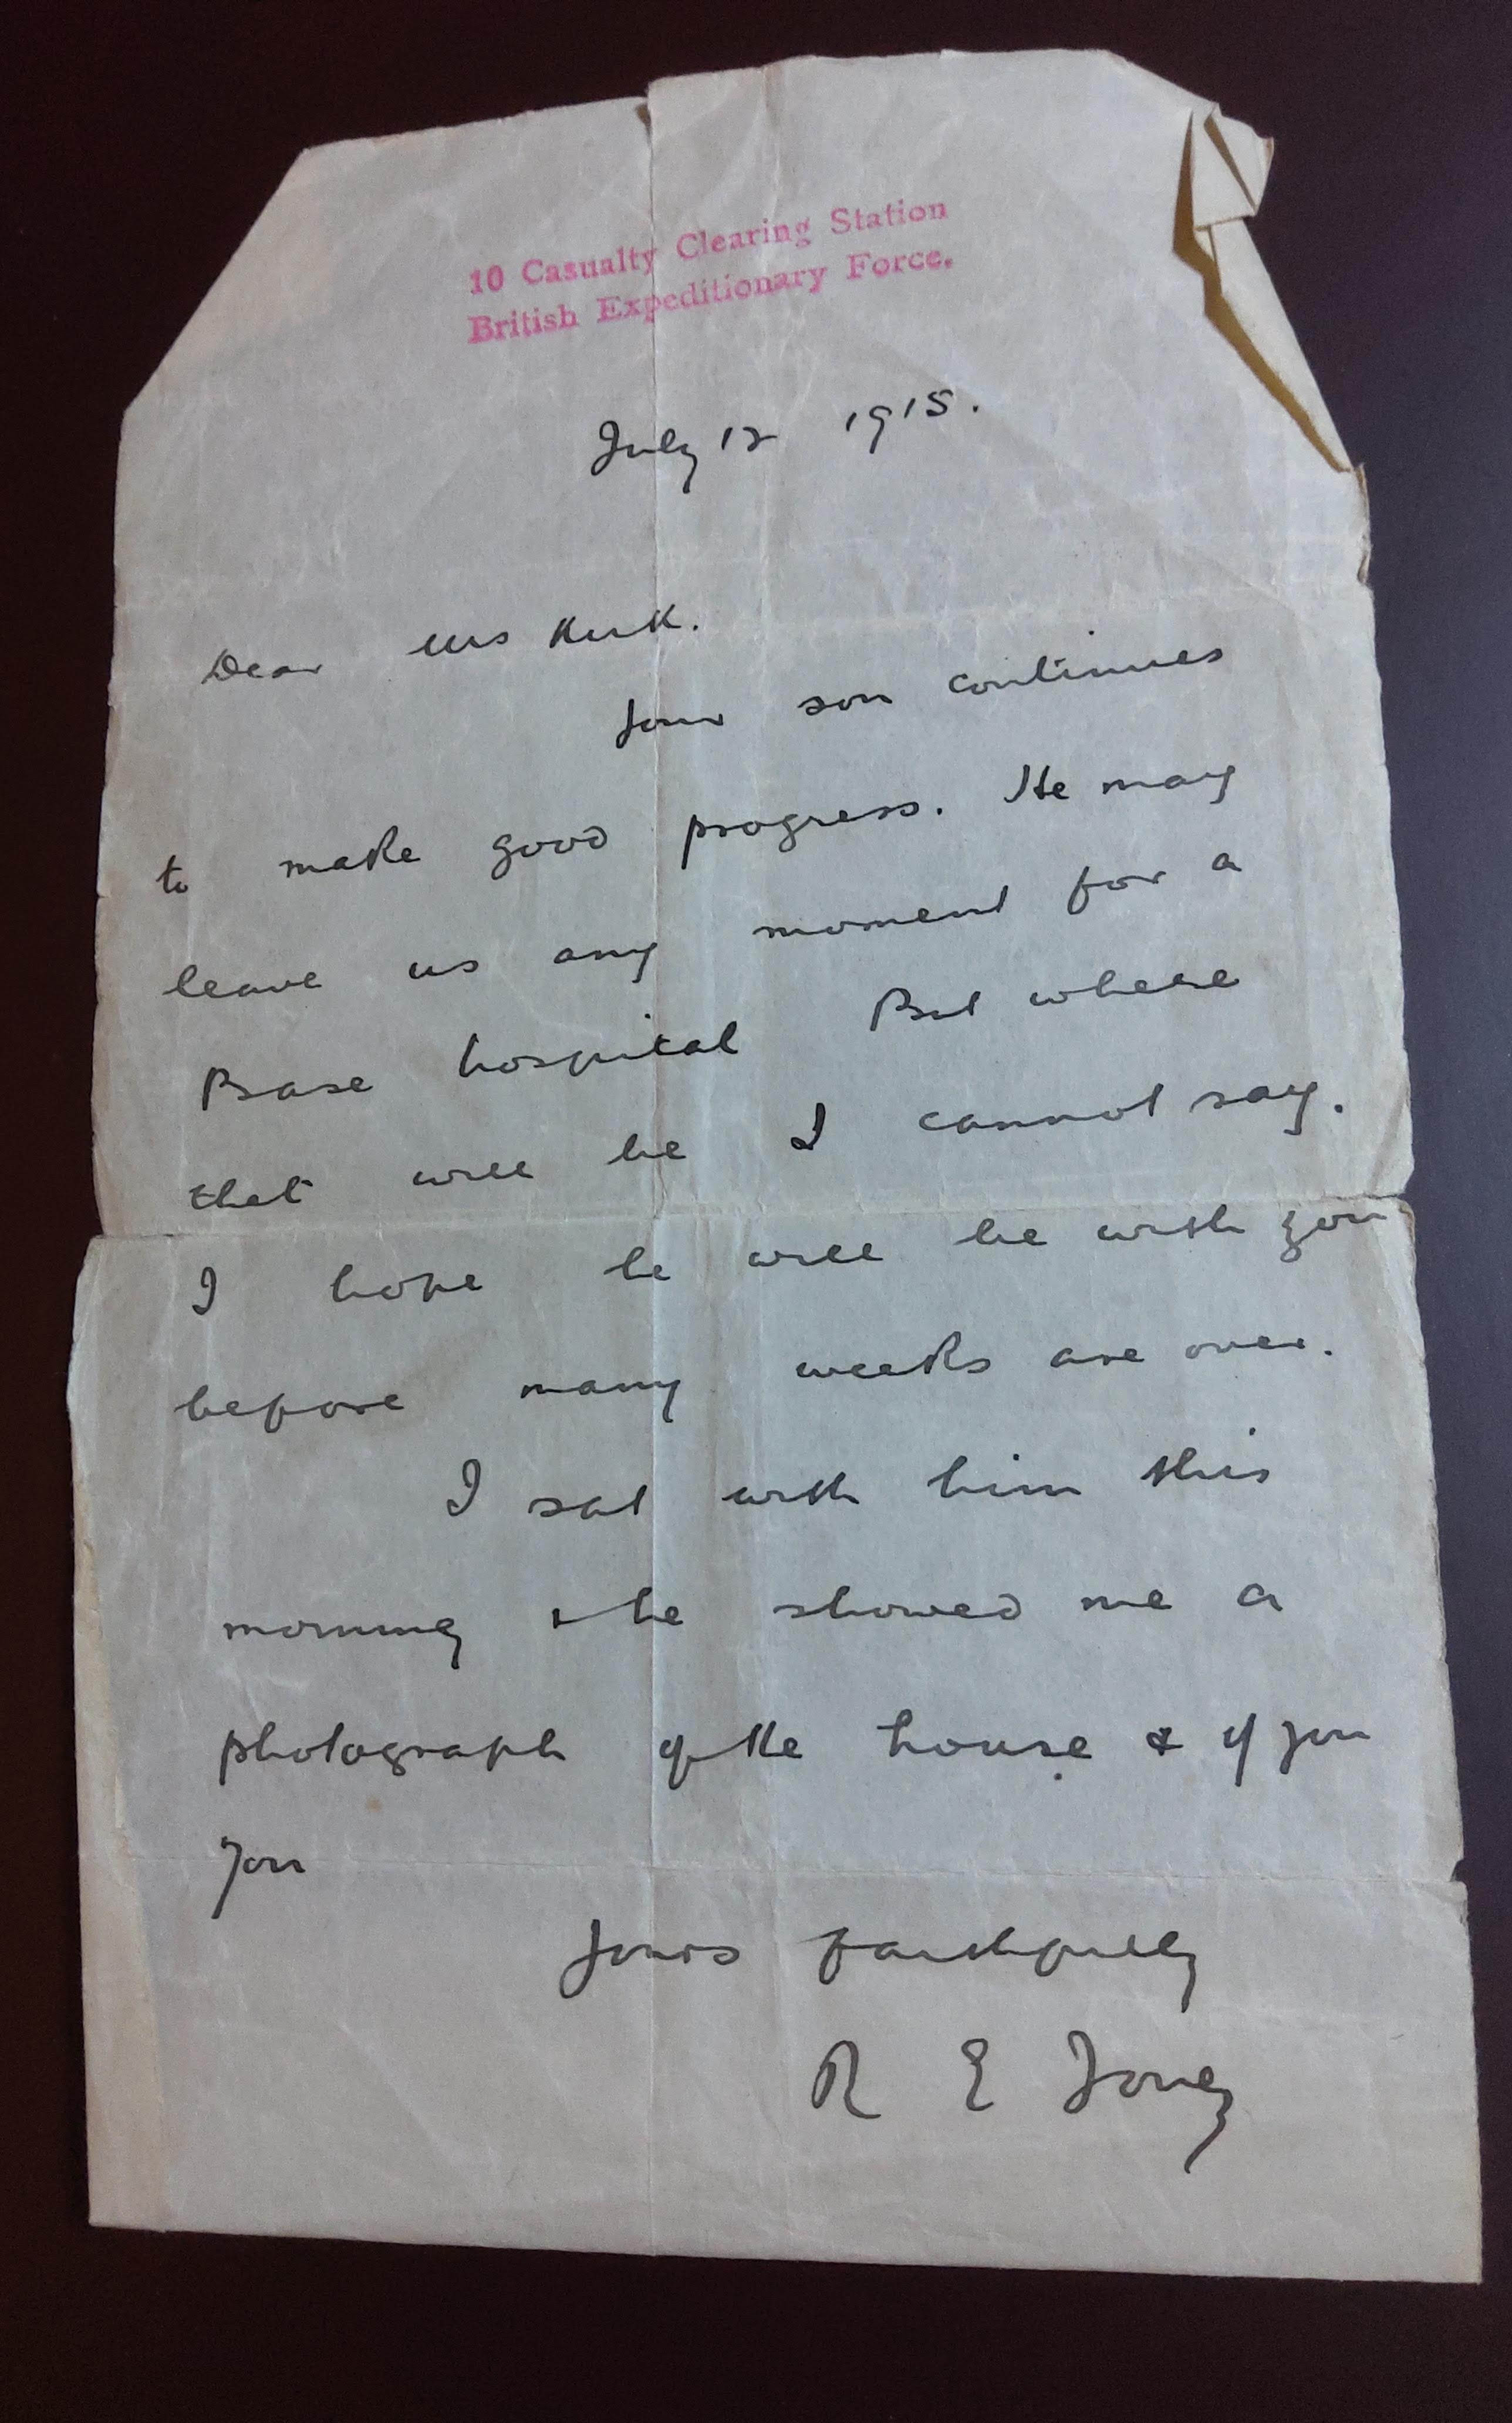 10 Casualty Clearing Station
British Expeditionary Force.
July 12 1915.
Dear Mrs Kirk.
Your son continues
to make good progress. He may
leave us any moment for a
Base hospital But where
that will be I cannot say.
I hope he will be with you
before many weeks are over.
I sat with him this
morning & he showed me a
photograph of the house & of you
you
Yours faithfully
R E Jones